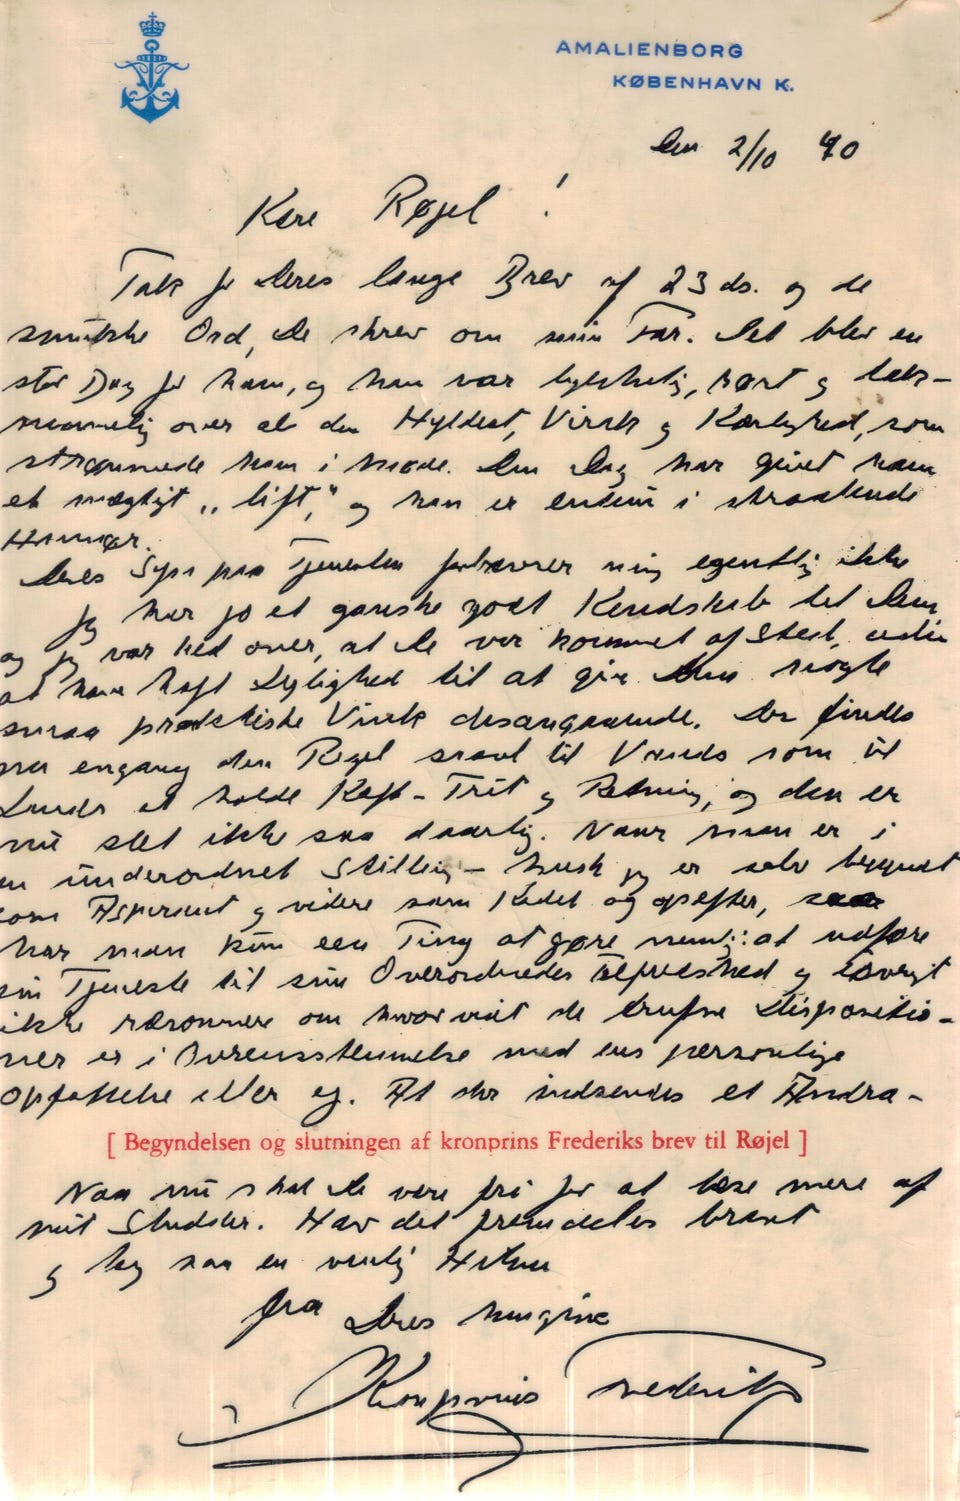 AMALIENBORG
KØBENHAVN K.
den 2/10 40
Kære Røjel!
Tak for Deres lange Brev af 23 ds. og de
smukke Ord, De skrev om min Far. Det blev en
stor Dag for ham, og han var lykkelig, rørt og tak-
nemmelig over al den Hyldest, Virak og Kærlighed, som
strømmede ham i møde. Den Dag har givet ham
et mægtigt „lift“, og han er endnu i straalende
Humør.
Deres Syn paa Tjenesten forbavser mig egentlig ikke
Jeg har jo et ganske godt Kendskab til Dem
og jeg var ked over, at De var kommet af Sted, uden
at have haft Lejlighed til at give Dem nogle
smaa praktiske Vink desangaaende. Der findes
nu engang den Regel saavel til Vands som til
Lands at holde Kæft - Trit og Retning, og den er
nu slet ikke saa daarlig. Naar man er i
en underordnet Stilling - husk jeg er selv begyndt
som Aspirant og videre som Kadet og opefter, saa
har man kun een Ting at gøre nemlig: at udføre
sin Tjeneste til sine Overordnedes Tilfredshed og iøvrigt
ikke ræsonnere om hvorvidt de trufne Dispositio-
ner er i Overensstemmelse med ens personlige
Opfattelse eller ej. At der indsendes et Andra-
[ Begyndelsen og slutningen af kronprins Frederiks brev til Røjel ]
Naa nu skal De være fri for at læse mere af
mit Sludder. Hav det fremdeles bravt
og tag saa en venlig Hilsen
fra Deres hengivne
Kronprins Frederik